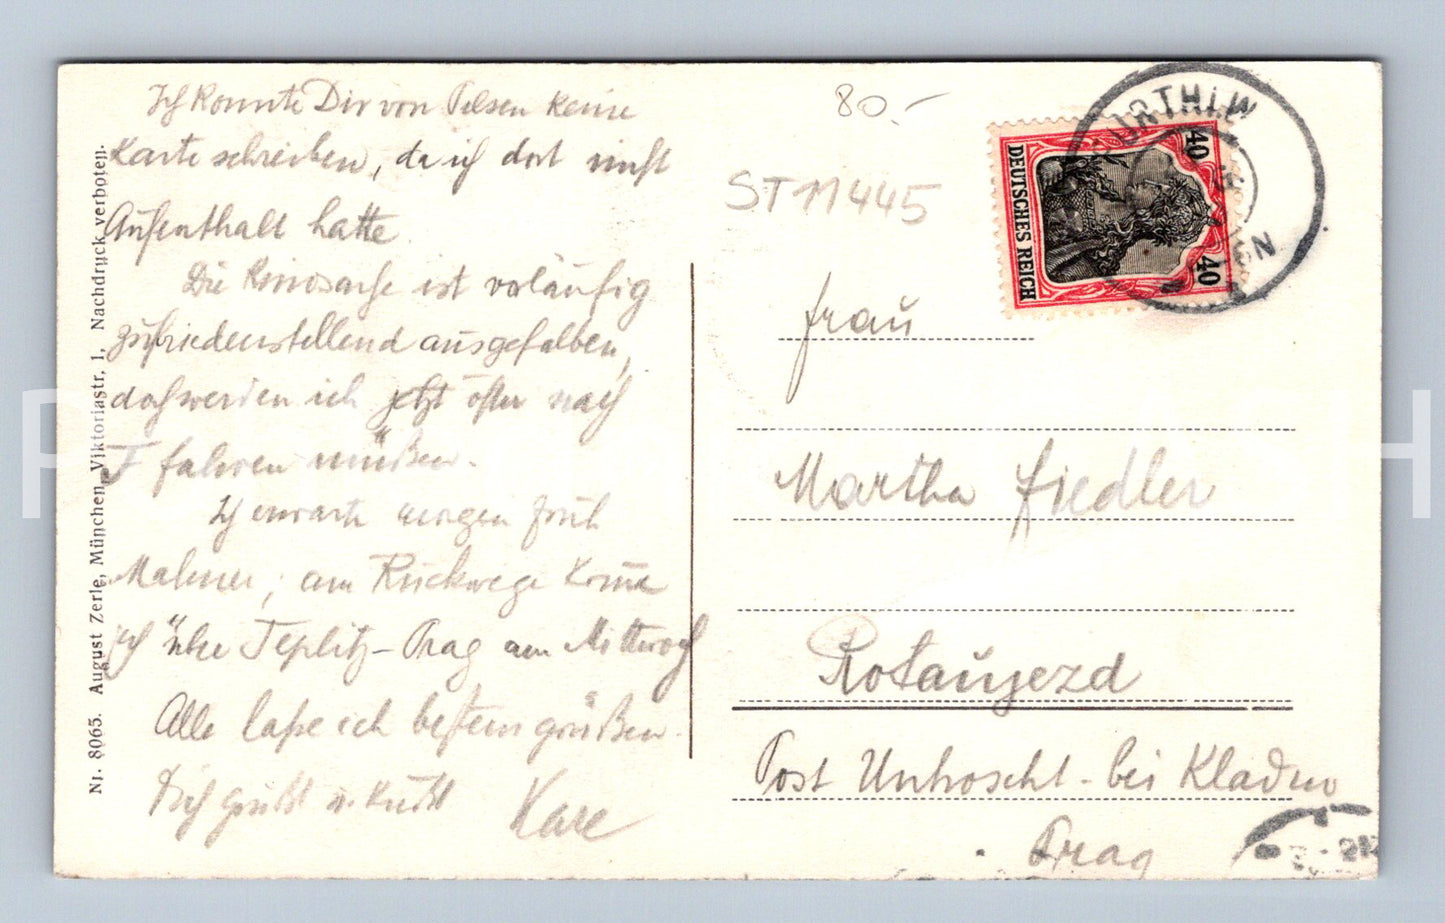 Ich konnte Dir von Pilsen keine
Karte schreiben, da ich dort nicht
Aufenthalt hatte.
Die Kinosache ist voläufig
zufriedenstellend ausgefallen,
doch werden ich jetzt öfter nach
F fahren müßen.
Ich erwarte morgen früh
am Rückwege komme
ich über Teplitz-Prag am Mittwoch
Alle laße ich bestens grüßen.
Dich grüßt u. küßt
Nr. 8065. August Zerle, München, Viktoriastr. 1. Nachdruck verboten.
80.-
ST 11445
DEUTSCHES REICH
40
40
FURTH I W
Frau
Martha Fiedler
Rotaujezd
Post Unhoscht - bei Kladno
Prag